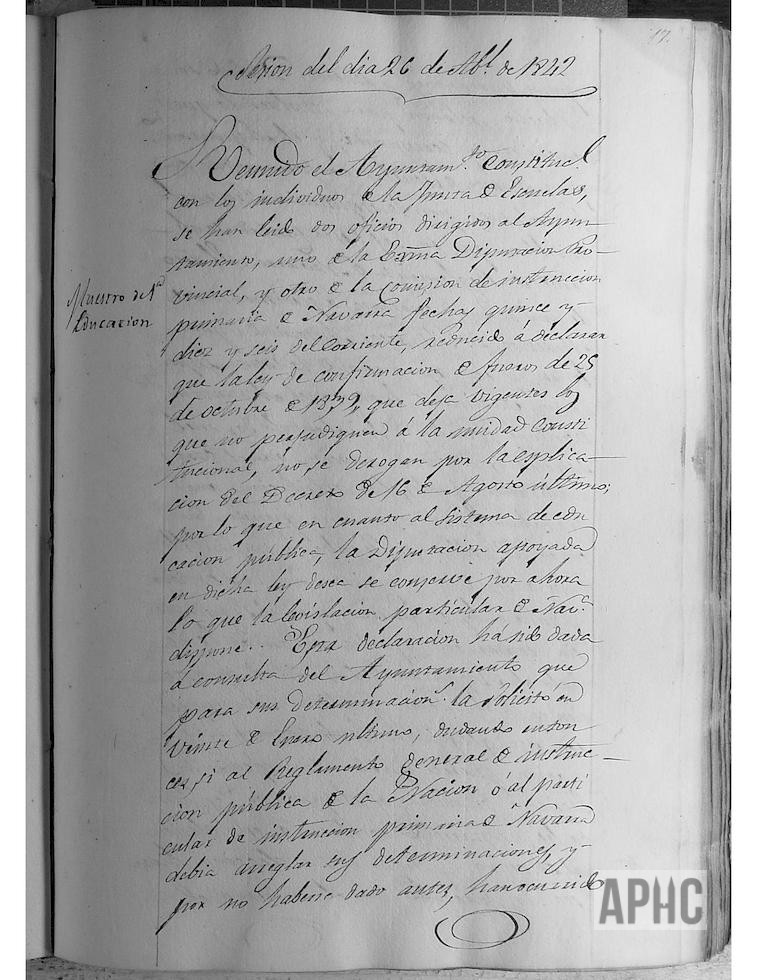 17.
Sesion del dia 26 de Abl. de 1842
Reunido el Ayuntam.to Constitucl.
con los individuos de la Junta de Escuelas,
se han leido dos oficios dirigidos al Ayun-
tamiento, uno de la Exma Diputacion Pro-
vincial, y otro de la Comision de instruccion
primaria de Navarra fechas quince y
diez y seis del corriente, reducido á declarar
que la ley de confirmacion de fueros de 25
de octubre de 1839, que deja vigentes los
que no perjudiquen á la unidad Consti
tucional, no se derogan por la esplica-
cion del Decreto de 16 de Agosto último;
por lo que en cuanto al sistema de edu
cacion pública, la Diputacion apoyada
en dicha ley desea se conserve por ahora
lo que la legislacion particular de Nav.a
dispone. Esta declaracion há sido dada
á consulta del Ayuntamiento que
para sus determinacion.s la solicitó en
veinte de Enero último, dudando enton
ces, si al Reglamento general de instruc-
cion pública de la Nacion ó al parti
cular de instruccion primaria de Navarra
debia arreglar sus determinaciones, y
por no haberse dado antes, han ocurrido
Maestro de 1.a
Educacion
APHC